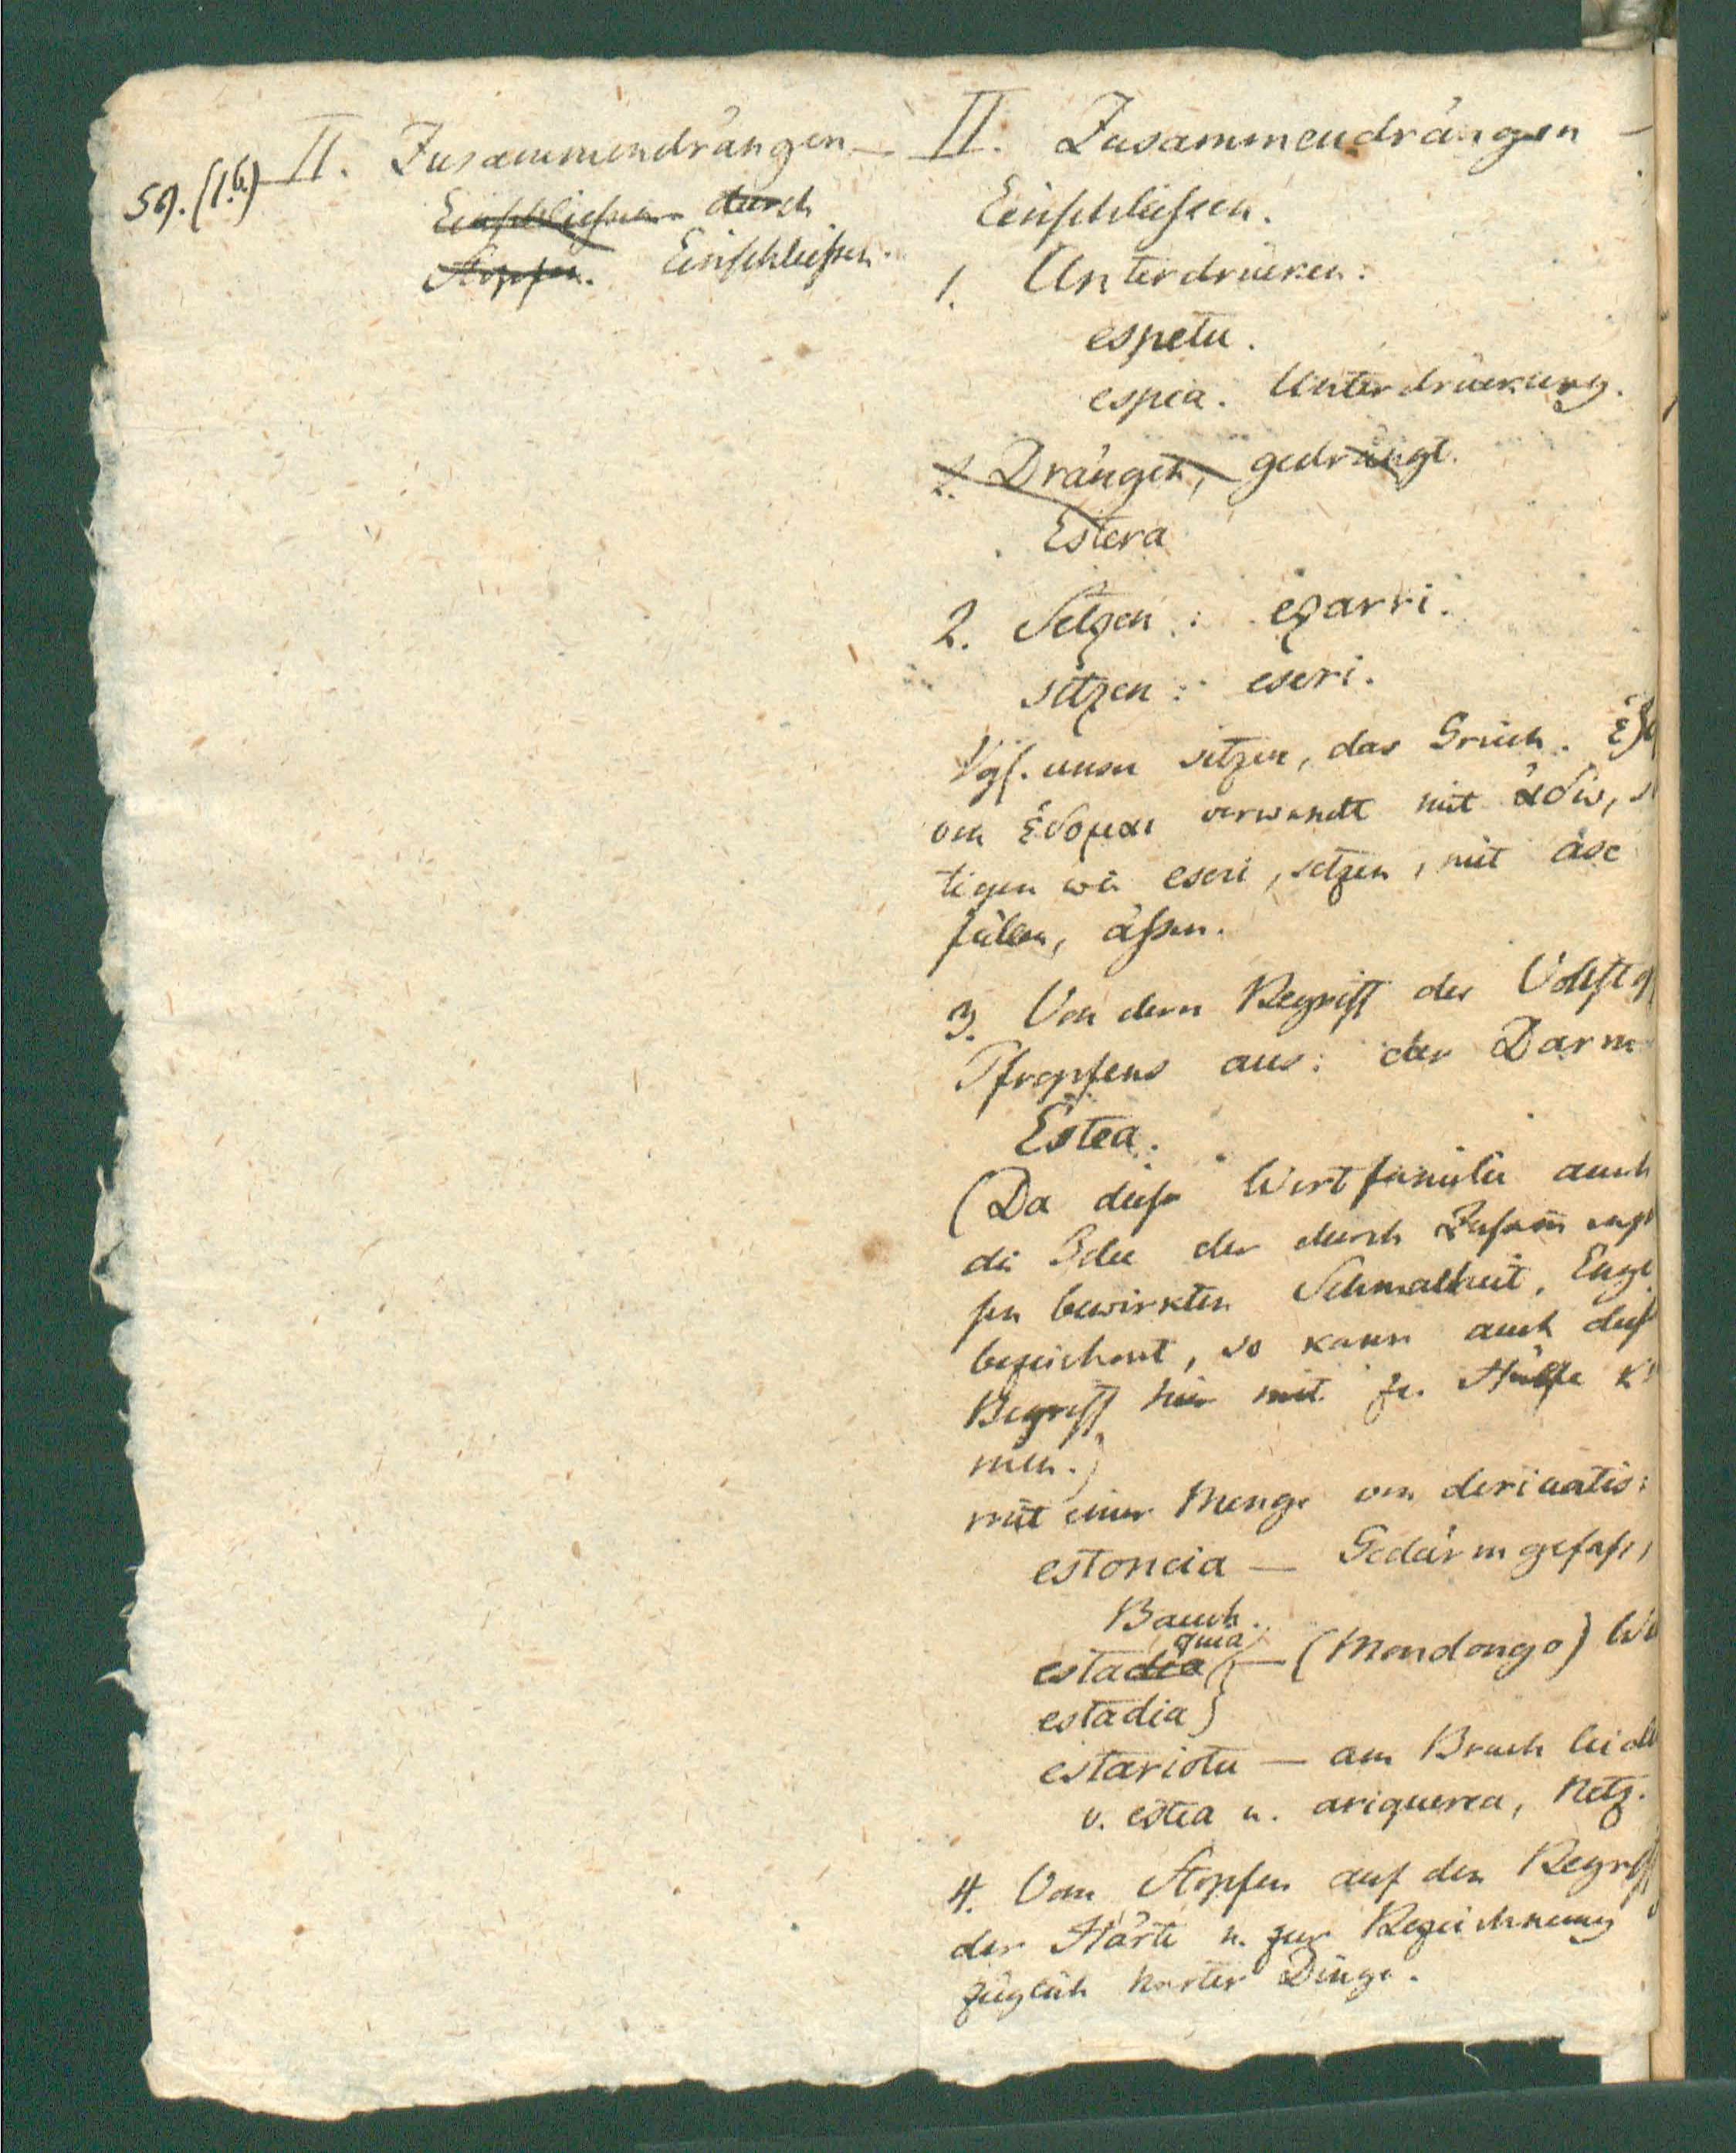 59. (1.b.)
II. Zusammendrängen —
Einschließen durch
Stopfen. Einschließen.
II. Zusammendrängen —
Einschließen.
1. Unterdrücken:
espetu.
espia. Unterdrückung.
2. Drängen, gedrängt.
Estera
2. Setzen: ezarri.
sitzen: eseri.
Vgl. unser sitzen, das Griech.
von ἕδομαι verwandt mit ἀδῶ,
tigen wie eseri, setzen, mit ase
füllen, äßen.
3. Von dem Begriff des
Pfropfens aus: der Darm
Estea.
(Da diese Wortfamilie auch
die Idee der durch
bewirkten Schmalheit, Enge
bezeichnet, so kann auch
Begriff hier mit zu Hülfe
men.)
mit einer Menge von derivatis:
estoncia — Gedärmgefäß,
Bauch.
estadia quia — (Mondongo)
estadia)
estaristu — am Bruch
v. estea u. ariquerea, Netz.
4. Vom Stopfen auf den Begriff
der Härte u. zur Bezeichnung
züglich harter Dinge.